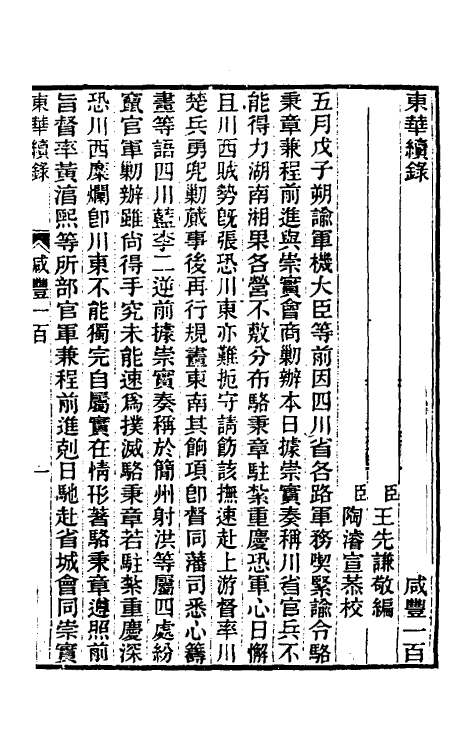 東華續錄　咸豐一百
臣王先謙敬編
臣陶濬宣恭校
五月戊子朔諭軍機大臣等前因四川省各路軍務喫緊諭令駱
秉章兼程前進與崇實會商勦辦本日據崇實奏稱川省官兵不
能得力湖南湘果各營不敷分布駱秉章駐紮重慶恐軍心日懈
且川西賊勢旣張恐川東亦難扼守請飭該撫速赴上游督率川
楚兵勇兜勦蕆事後再行規畫東南其餉項卽督同藩司悉心籌
畫等語四川藍李二逆前據崇實奏稱於簡州射洪等屬四處紛
竄官軍勦辦雖尙得手究未能速爲撲滅駱秉章若駐紮重慶深
恐川西糜爛卽川東不能獨完自屬實在情形著駱秉章遵照前
旨督率黃淯熙等所部官軍兼程前進剋日馳赴省城會同崇實
東華續錄　咸豐一百　一